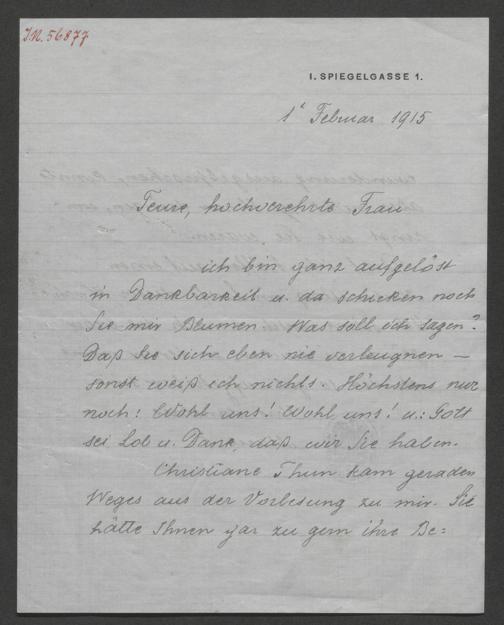 I.N. 56877
I. SPIEGELGASSE 1.
1t Februar 1915
Teure, hochverehrte Frau
ich bin ganz aufgelöst
in Dankbarkeit u. da schicken noch
Sie mir Blumen. Was soll ich sagen?
Daß Sie sich eben nie verleugnen —
sonst weiß ich nichts. Höchstens nur
noch: Wohl uns! Wohl uns! u.: Gott
sei Lob u. Dank, daß wir Sie haben.
Christiane Thun kam geraden
Weges aus der Vorlesung zu mir. Sie
hätte Ihnen gar zu gern ihre Be: